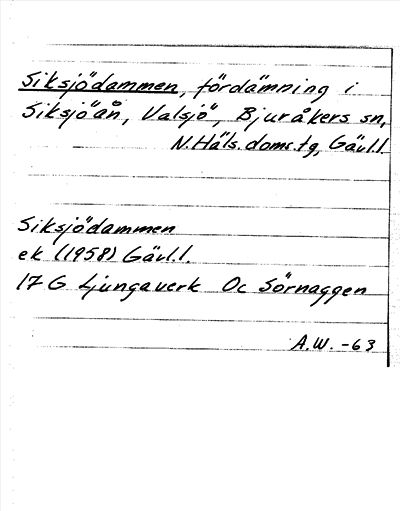 Siksjödammen, fördämning i
Siksjöån, Valsjö, Bjuråkers sn,
N.Häls.doms.tg, Gävl.l.
Siksjödammen
ek (1958) Gävl.l.
17 G Ljungaverk Oc Sörnaggen
A.W. -63